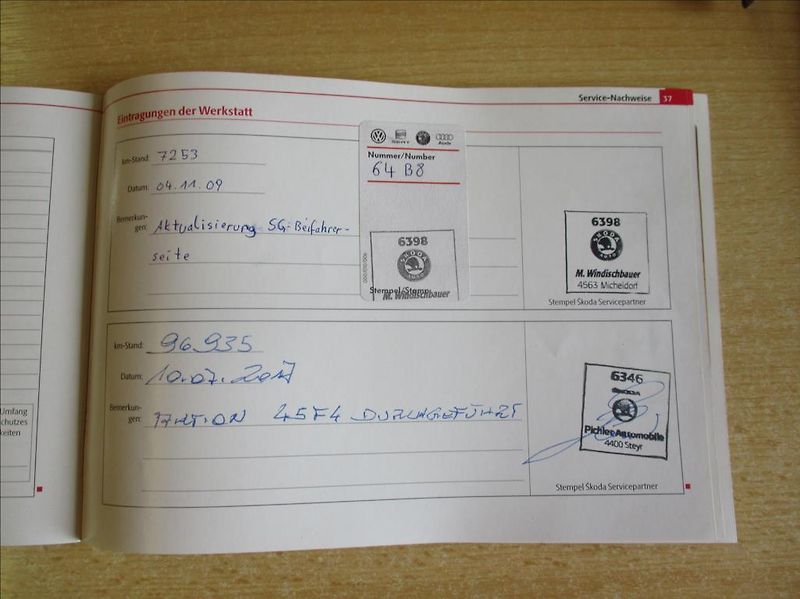 Service-Nachweise 37
Eintragungen der Werkstatt
km-Stand: 7253
Datum: 04.11.09
Bemerkun-
gen: Aktualisierung SG-Beifahrer-
seite
Audi
Nummer/Number
64 B8
6398
SKODA
M. Windischbauer
Stempel/Stamp
6398
SKODA
M. Windischbauer
4563 Micheldorf
Stempel Škoda Servicepartner
km-Stand: 96935
Datum: 10.07.2017
Bemerkun-
gen: AKTION 45F4 DURCHGEFÜHRT
6346
SKODA
Pichler Automobile
4400 Steyr
Stempel Škoda Servicepartner
Umfang
chutzes
keiten